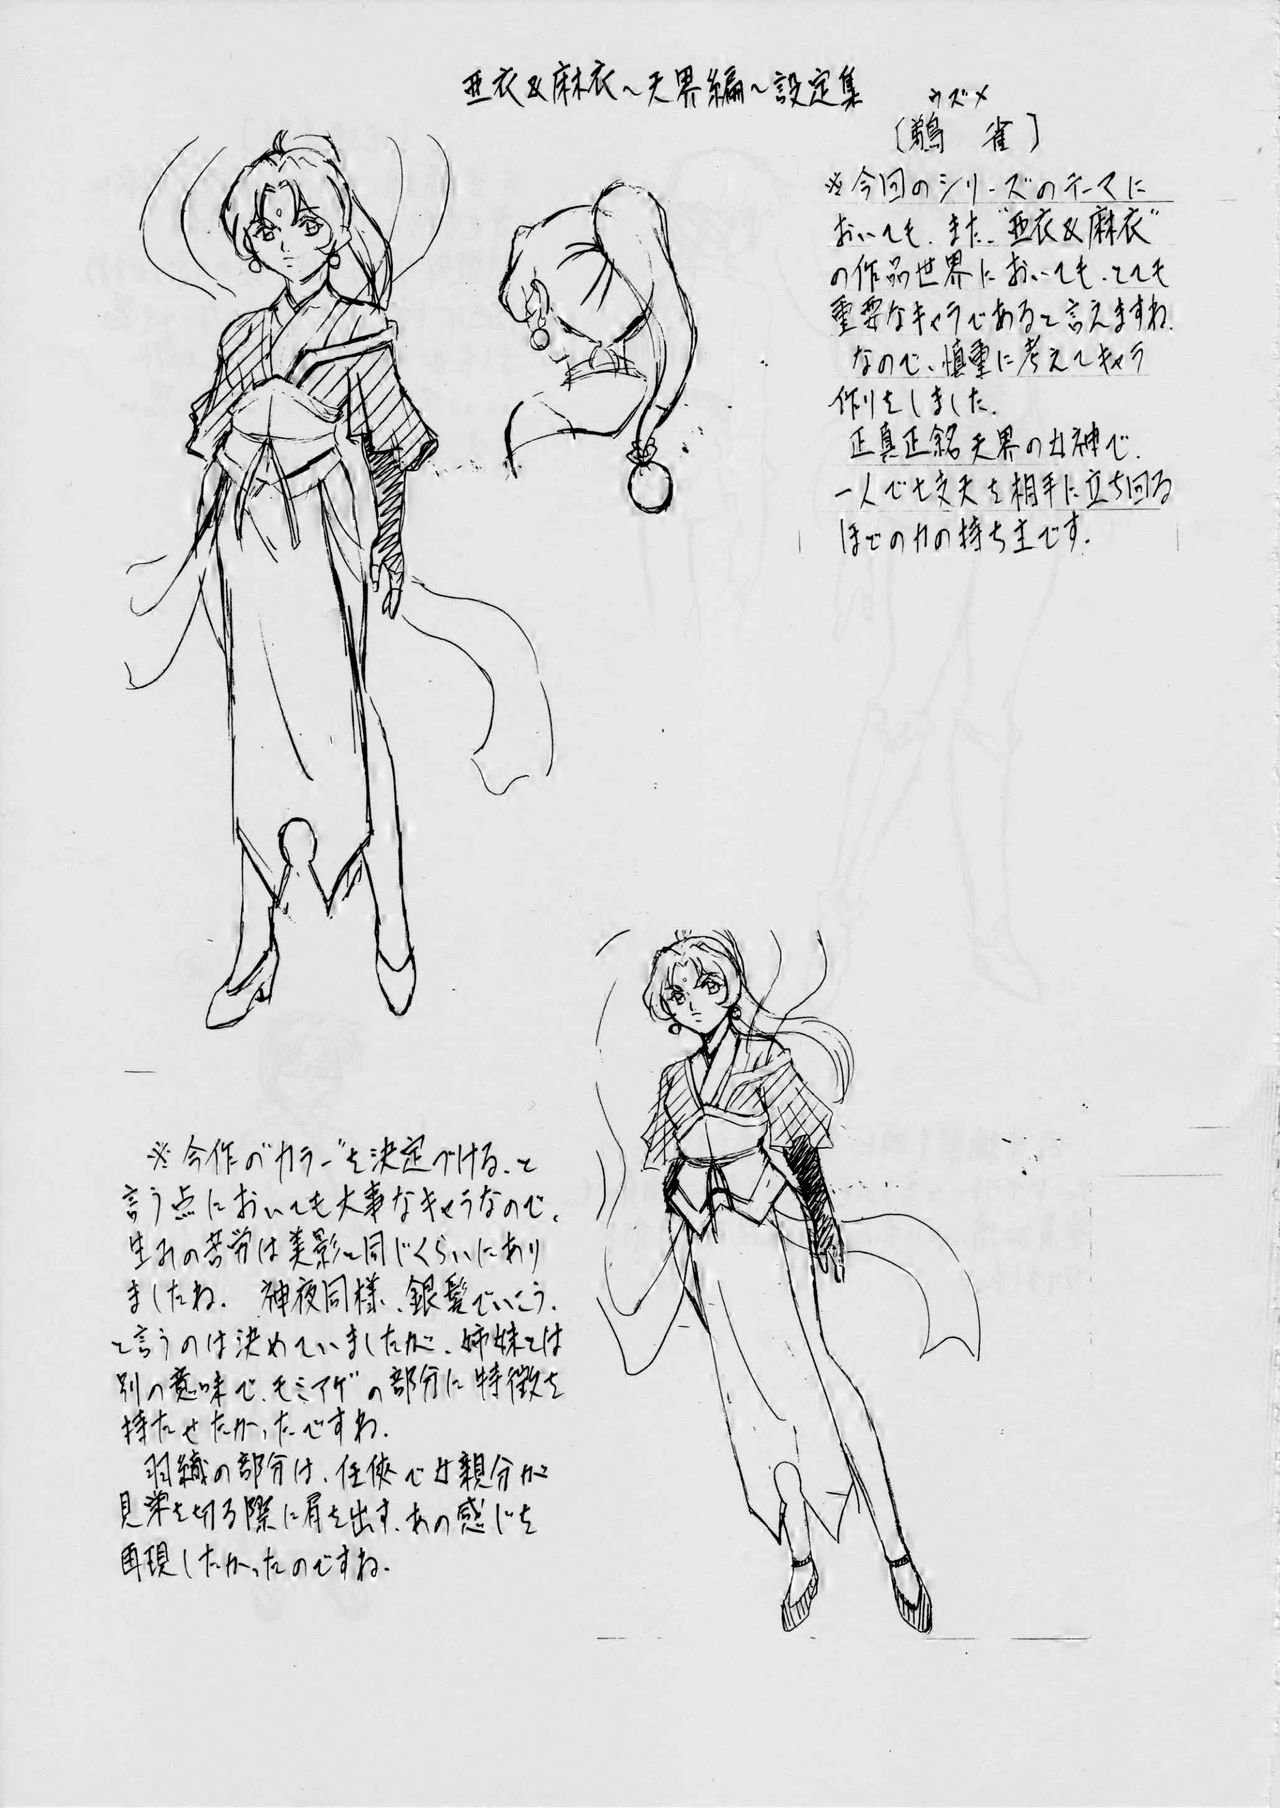 亜衣&麻衣～天界編～設定集
ウズメ
〔鵜 雀〕
※今回のシリーズのテーマに
おいても、また、"亜衣&麻衣"
の作品世界においても、とても
重要なキャラであると言えますね.
なので、慎重に考えてキャラ
作りをしました.
正真正銘天界の女神で、
一人で七丈夫を相手に立ち回る
ほどの力の持ち主です.
※今作の"カラー"を決定づける、と
言う点においても大事なキャラなので、
生みの苦労は美影と同じくらいにあり
ましたね. 神夜同様、銀髪でいこう、
と言うのは決めていましたが、姉妹とは
別の意味で、モミアゲの部分に特徴を
持たせたかったですね.
羽織の部分は、任侠で女親分が
見栄を切る際に肩を出す、あの感じを
再現したかったのですね.